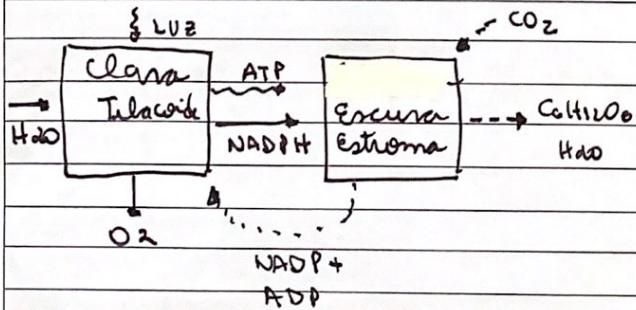 LUZ
CO2
Clara
Tilacoide
ATP
NADPH
H2O
O2
Escura
Estroma
C6H12O6
H2O
NADP+
ADP